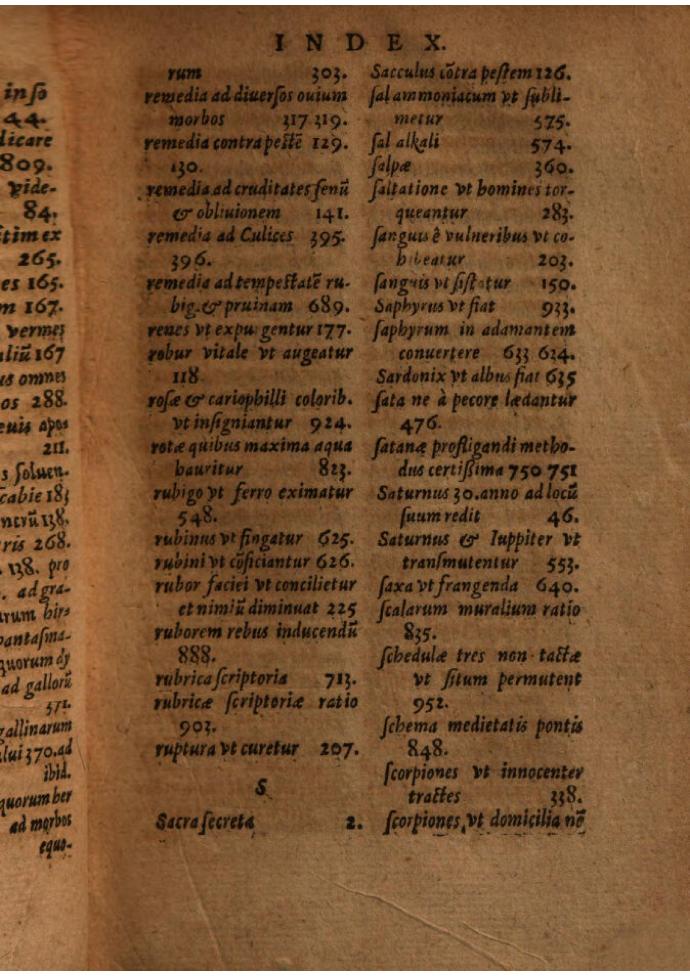 INDEX.
in ſo
44.
licare
809.
vide-
84.
ſtim ex
265.
es 165.
m 167.
vermes
aliũ 167
us omnes
os 288.
euis apos
211.
s ſoluen-
cabie 183
ncrũ 138.
ris 268.
. 138. pro
. ad gra-
arum hirs
pantaſma-
quorum dy
ad gallorũ
571.
gallinarum
lui 370. ad
ibid.
quorum ber
ad morbos
equo-
rum 303.
remedia ad diuerſos ouium
morbos 317 319.
remedia contra peſtẽ 129.
130.
remedia ad cruditates ſenũ
& obliuionem 141.
remedia ad Culices 395.
396.
remedia ad tempeſtatẽ ru-
big. & pruinam 689.
renes vt expurgentur 177.
robur vitale vt augeatur
118.
roſæ & cariophilli colorib.
vt inſigniantur 924.
rotæ quibus maxima aqua
hauritur 823.
rubigo vt ferro eximatur
548.
rubinus vt fingatur 625.
rubini vt cõficiantur 626.
rubor faciei vt concilietur
et nimiũ diminuat 225
ruborem rebus inducendũ
888.
rubrica ſcriptoria 713.
rubricæ ſcriptoriæ ratio
903.
ruptura vt curetur 207.
S
Sacra ſecreta 2.
Sacculus cõtra peſtem 126.
ſal ammoniacum vt ſubli-
metur 575.
ſal alkali 574.
ſalpæ 360.
ſaltatione vt homines tor-
queantur 283.
ſanguis è vulneribus vt co-
hibeatur 203.
ſanguis vt ſiſtatur 150.
Saphyrus vt fiat 933.
ſaphyrum in adamantem
conuertere 633 624.
Sardonix vt albus fiat 635
ſata ne à pecore lædantur
476.
ſatanæ profligandi metho-
dus certiſsima 750 751
Saturnus 30. anno ad locũ
ſuum redit 46.
Saturnus & Iuppiter vt
tranſmutentur 553.
ſaxa vt frangenda 640.
ſcalarum muralium ratio
835.
ſchedulæ tres non tactæ
vt ſitum permutent
952.
ſchema medietatis pontis
848.
ſcorpiones vt innocenter
tractes 338.
ſcorpiones, vt domicilia nõ